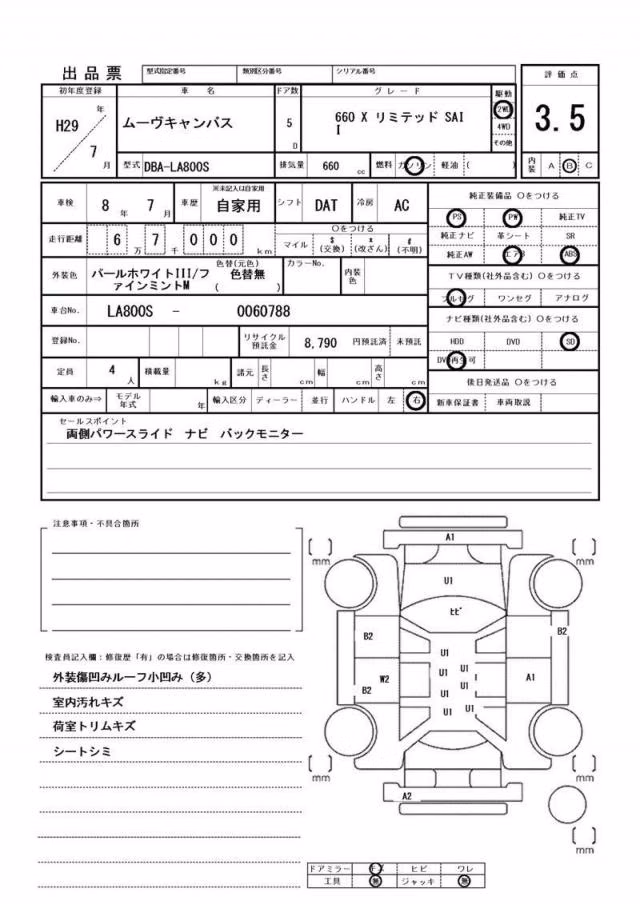 出品票
型式指定番号 類別区分番号 シリアル番号
評価点
3.5
内装 A B C
初年度登録 車名 ドア数 グレード 駆動
H29 年 / 7 月
ムーヴキャンバス 5 D 660 X リミテッド SAI
I
2WD
4WD
その他
型式 DBA-LA800S 排気量 660 cc 燃料 ガソリン 軽油 ( )
車検 8 年 7 月 車歴 ※未記入は自家用 自家用 シフト DAT 冷房 AC
走行距離 6 万 7 千 0 0 0 km
○をつける
マイル $ (交換) x (改ざん) # (不明)
外装色 パールホワイトIII/フ
ァインミントM
色替(元色)
色替無
( )
カラーNo. 内装色
車台No. LA800S - 0060788
登録No. リサイクル預託金 8,790 円預託済 未預託
定員 4 人 積載量 kg 諸元 長さ cm 幅 cm 高さ cm
輸入車のみ⇒ モデル年式 年 輸入区分 ディーラー 並行 ハンドル 左 右
純正装備品 ○をつける
PS PW 純正TV
純正ナビ 革シート SR
純正AW エアB ABS
TV種類(社外品含む) ○をつける
フルセグ ワンセグ アナログ
ナビ種類(社外品含む) ○をつける
HDD DVD SD
DVD再生可
後日発送品 ○をつける
新車保証書 車両取説
セールスポイント
両側パワースライド ナビ バックモニター
注意事項・不具合箇所
検査員記入欄:修復歴「有」の場合は修復箇所・交換箇所を記入
外装傷凹みルーフ小凹み(多)
室内汚れキズ
荷室トリムキズ
シートシミ
A1
[ ] mm
[ ] mm
U1
ヒビ
B2
B2
U1
U1 U1
W2
A1
U1 U1
B2
U1 U1
[ ] mm
[ ] mm
A2
[ ] mm
ドアミラー キズ ヒビ ワレ
工具 無 ジャッキ 無